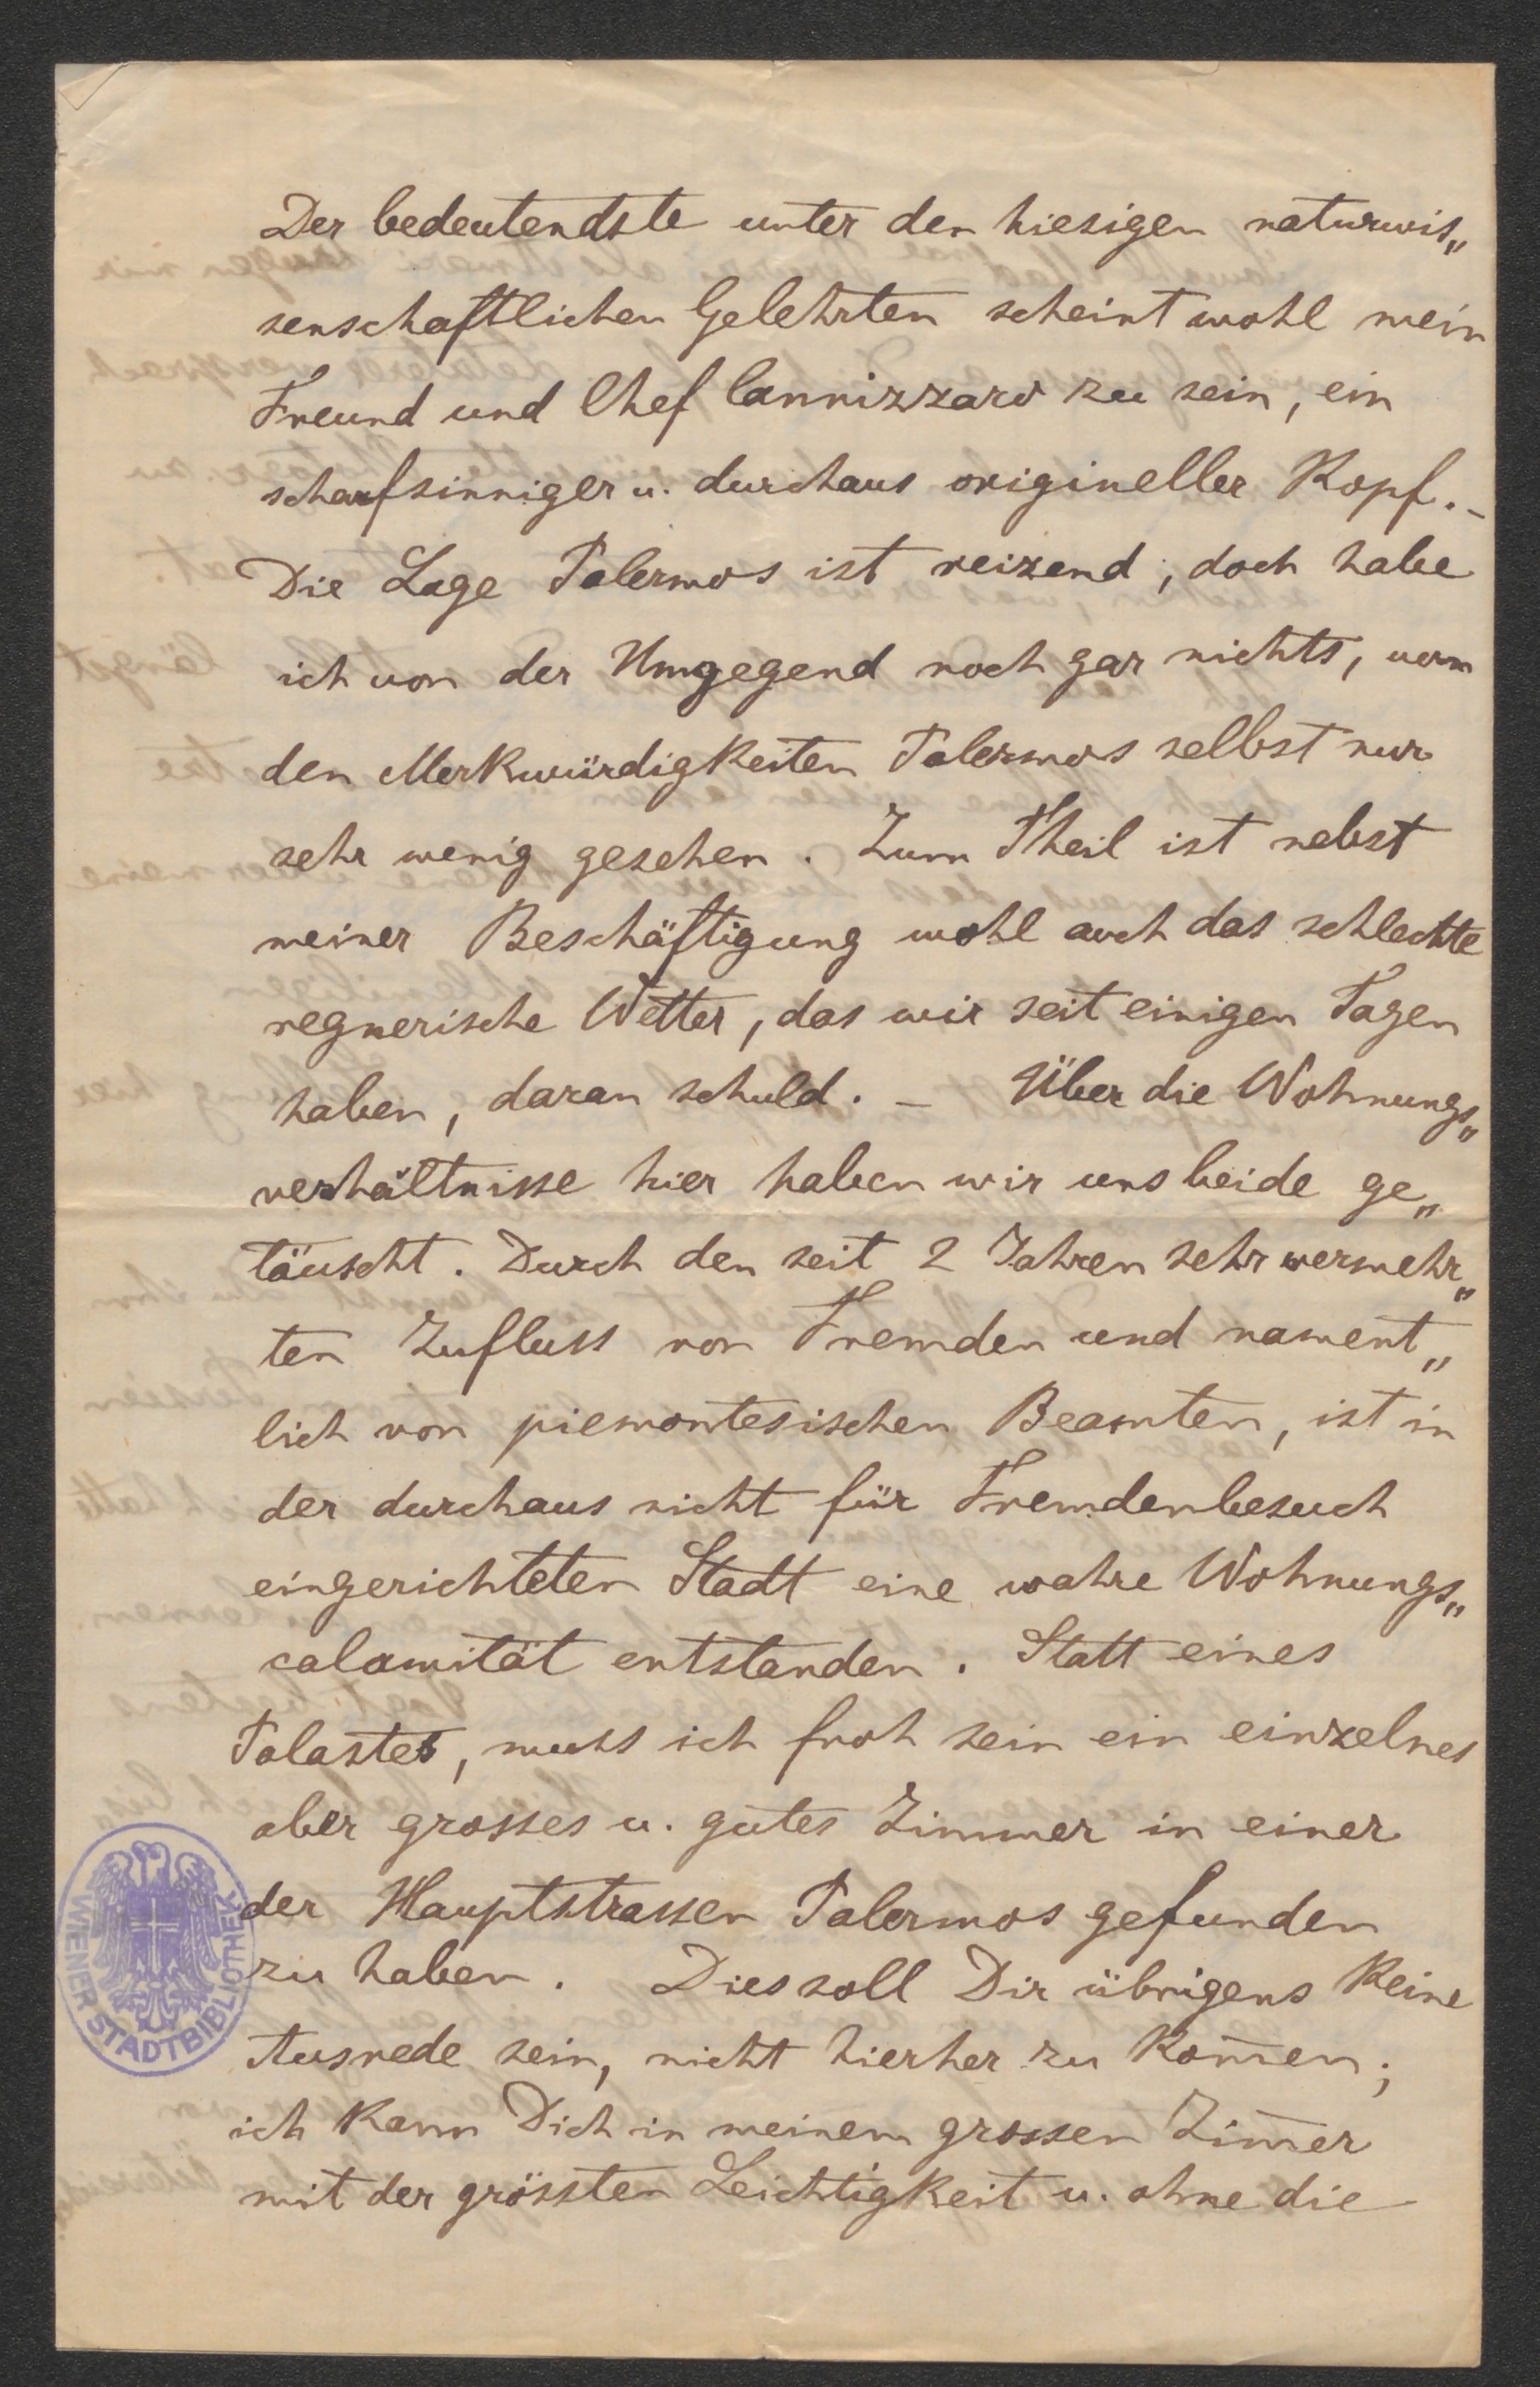 Der bedeutendste unter den hiesigen naturwis„
senschaftlichen Gelehrten scheint wohl mein
Freund und Chef Cannizzaro zu sein, ein
scharfsinniger u. durchaus origineller Kopf. –
Die Lage Palermos ist reizend; doch habe
ich von der Umgegend noch gar nichts, vom
den Merkwürdigkeiten Palermos selbst nur
sehr wenig gesehen. Zum Theil ist nebst
meiner Beschäftigung wohl auch das schlechte
regnerische Wetter, das wir seit einigen Tagen
haben, daran schuld. – Über die Wohnungs„
verhältnisse hier haben wir uns beide ge„
täuscht. Durch den seit 2 Jahren sehr vermehr„
ten Zufluss von Fremden und nament„
lich von piemontesischen Beamten, ist in
der durchaus nicht für Fremdenbesuch
eingerichteten Stadt eine wahre Wohnungs„
calamität entstanden. Statt eines
Palastes, muss ich froh sein ein einzelnes
aber grosses u. gutes Zimmer in einer
der Hauptstrassen Palermos gefunden
zu haben. Dies soll Dir übrigens keine
Ausrede sein, nicht hierher zu kom̄en;
ich kann Dich in meinem grossen Zim̄er
mit der grössten Leichtigkeit u. ohne die
WIENER STADTBIBLIOTHEK